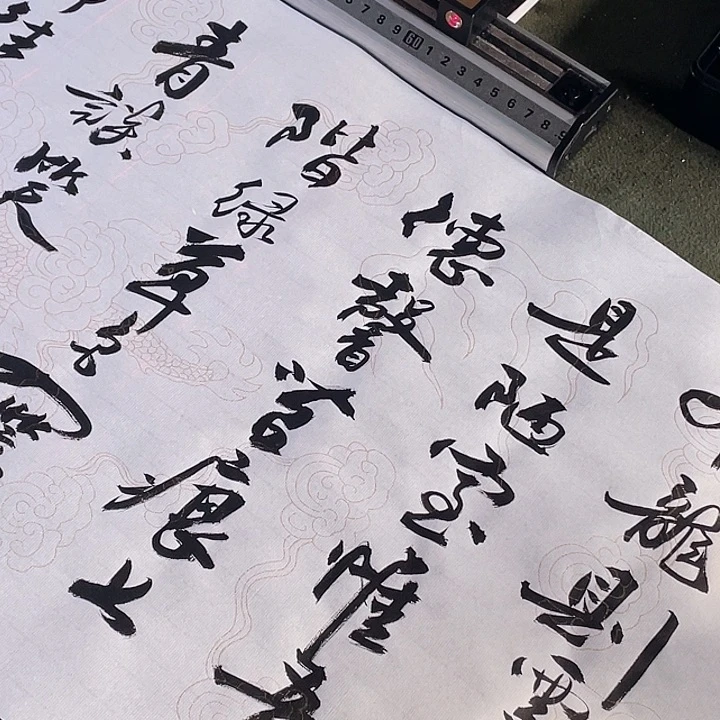 龍則
是陋室惟
德馨苔痕上
階緑草色
青談笑
7 8 9 60 1 2 3 4 5 6 7 8 9